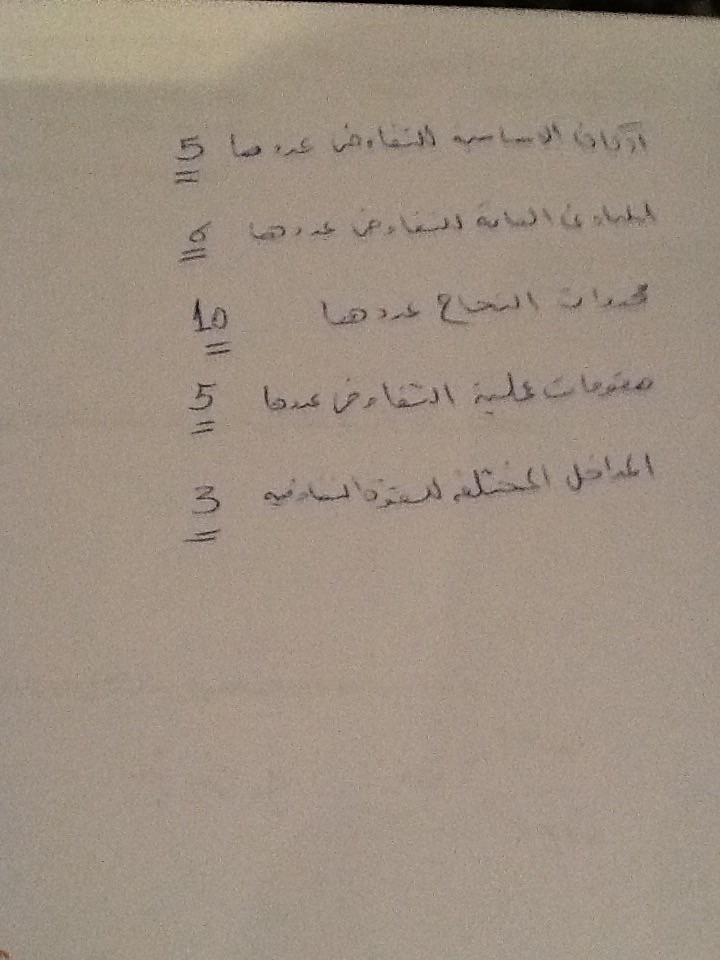 الاركان الاساسيه للتفاوض عددها 5
المبادئ العامة للتفاوض عددها 6
محددات النجاح عددها 10
مقومات عملية التفاوض عددها 5
المداخل المختلفه للقوة التفاوضيه 3